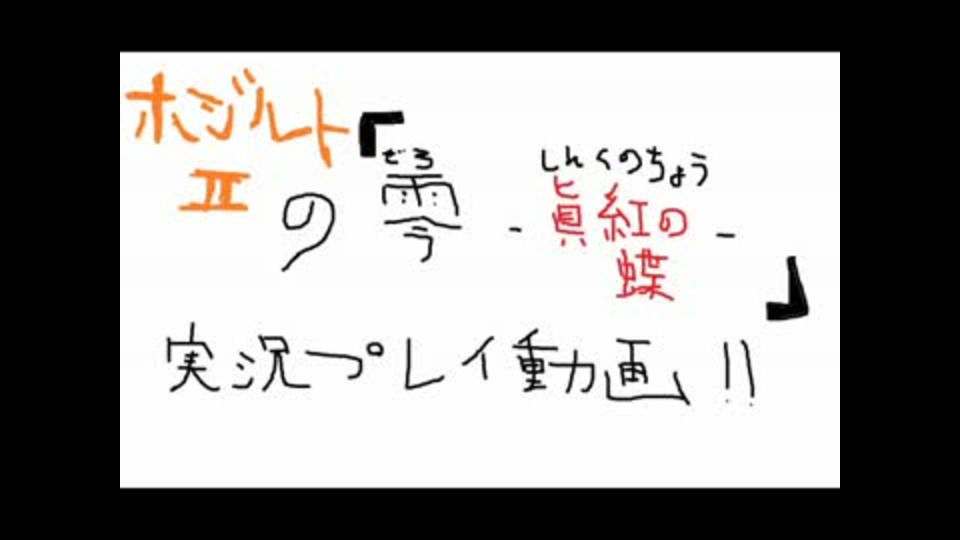 ホジルト
II
の『零 -眞紅の蝶-』
ぜろ
しんくのちょう
実況プレイ動画!!